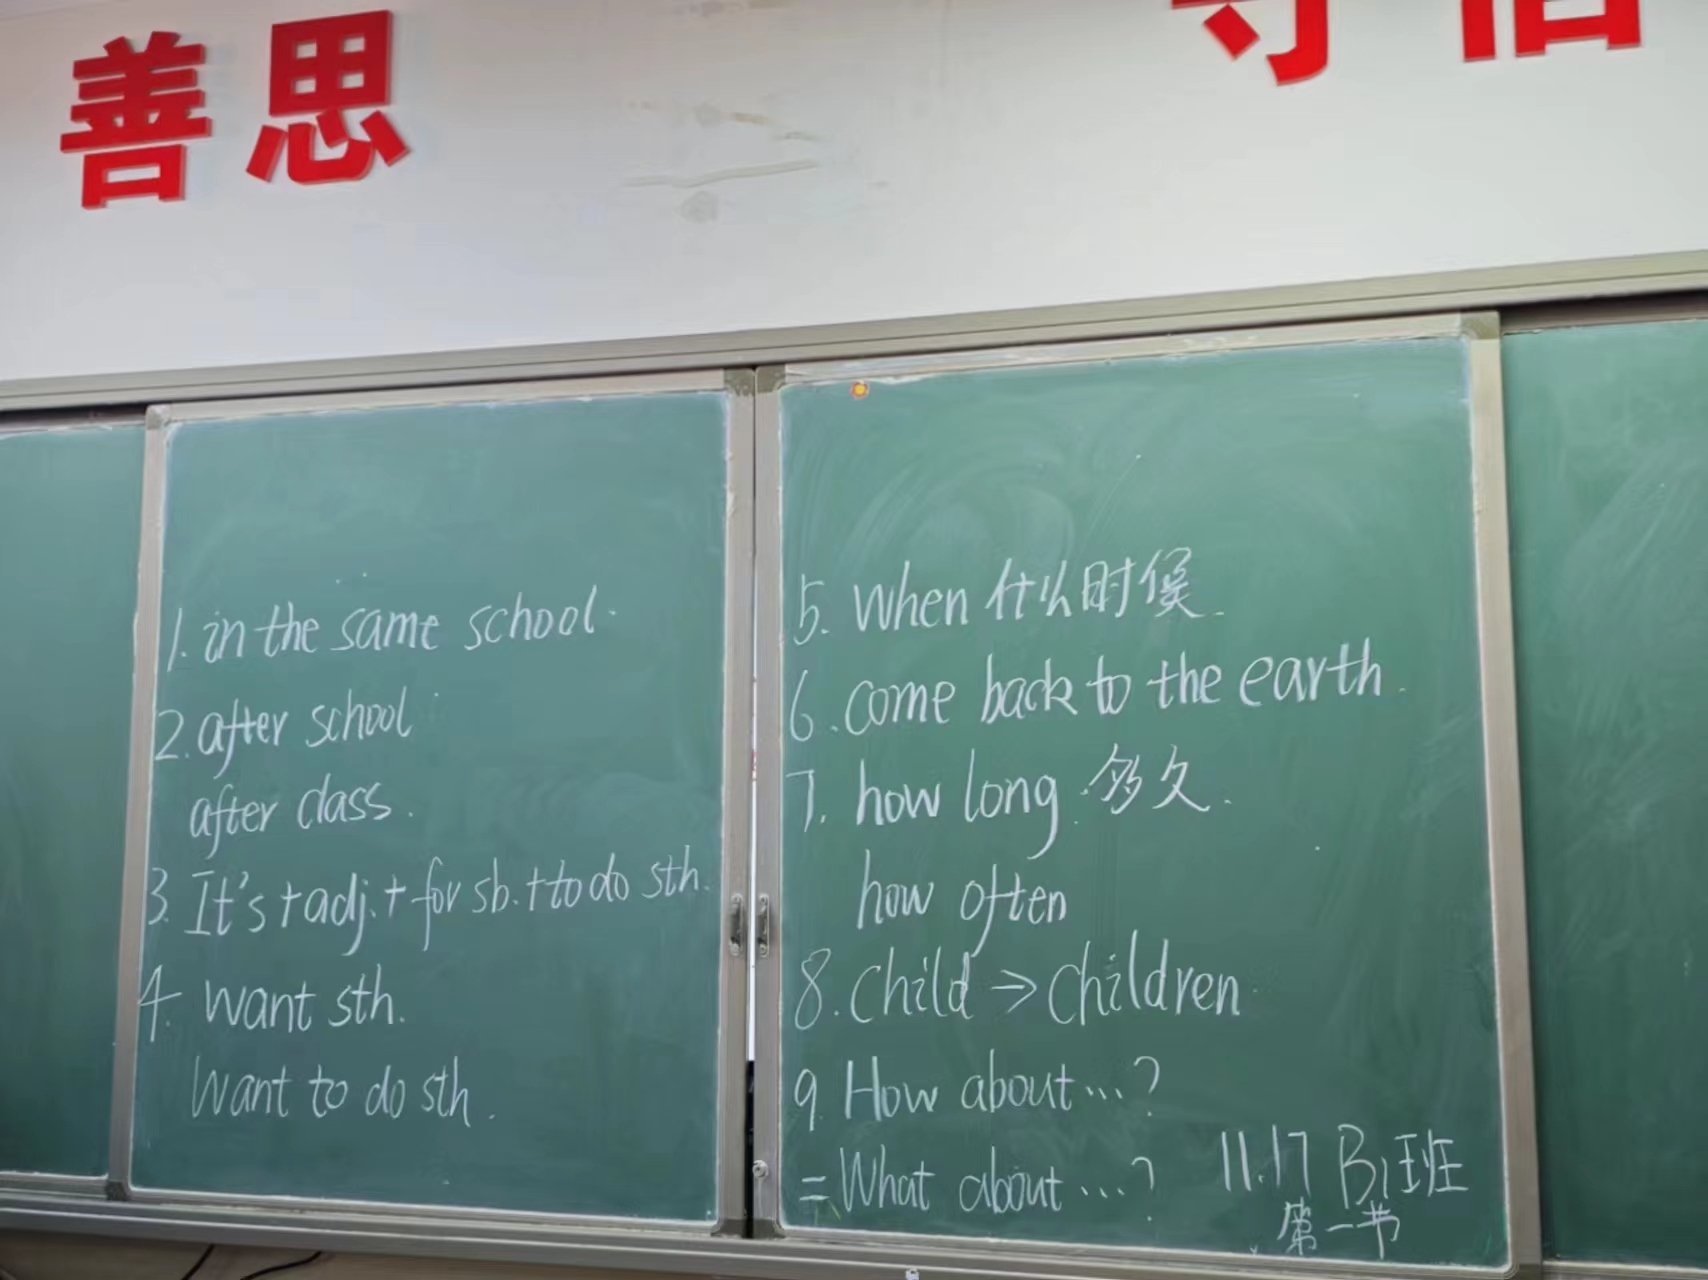 善思
1. in the same school.
2. after school
after class.
3. It's + adj. + for sb. + to do sth.
4. want sth.
want to do sth.
5. When 什么时候.
6. come back to the earth.
7. how long 多久.
how often
8. child → children
9. How about...?
= What about...?
11.17 B1班
第一节